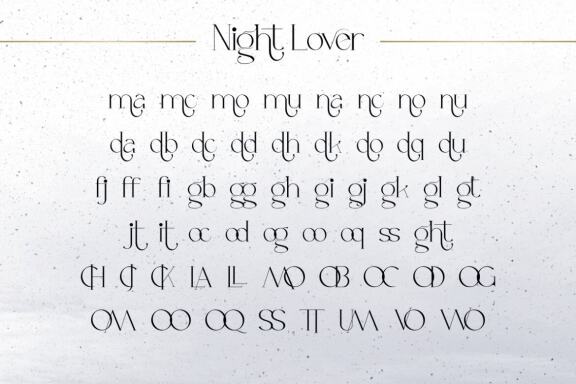 Night Lover
ma mc mo mu na nc no nu
da db dc dd dh dk do dq du
fj ff fi gb gg gh gi gj gk gl gt
jt it oc od og oo oq ss ght
CH CJ CK LA LL MO OB OC OD OG
OM OO OQ SS TT UM VO WO